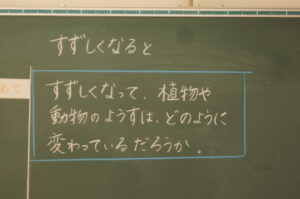 すずしくなると
めあて
すずしくなって、植物や
動物のようすは、どのように
変わっているだろうか。